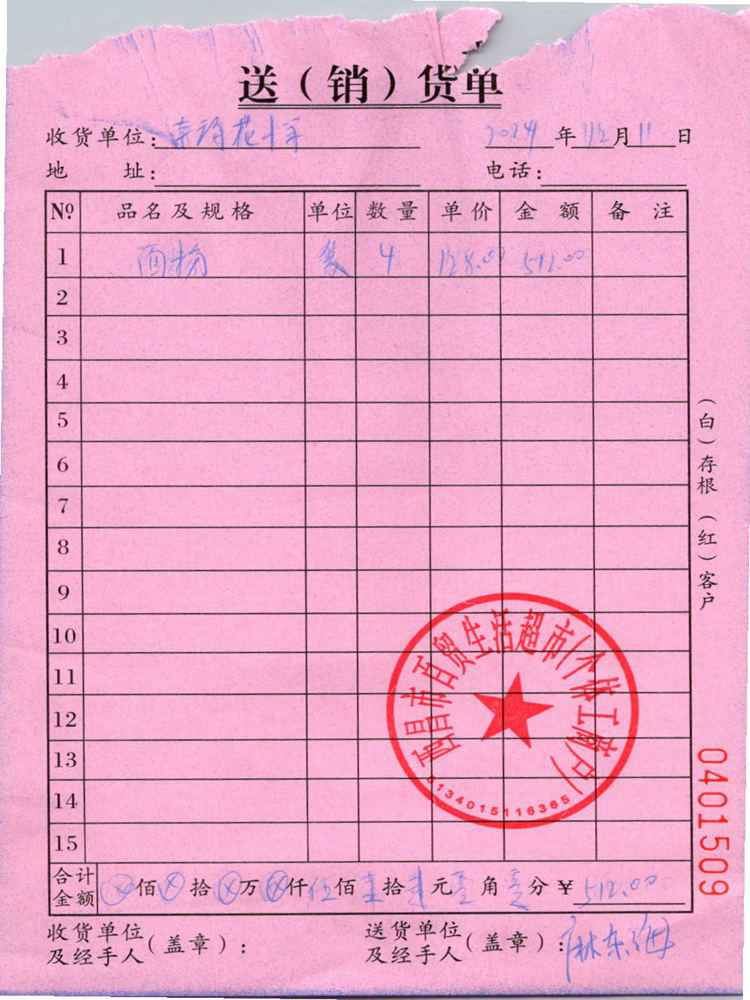 送（销）货单
收货单位： 2024年12月11日
地 址： 电话：
№ 品名及规格 单位 数量 单价 金额 备注
1 4 128.00 512.00
2
3
4
5
6
7
8
9
10
11
12
13
14
15
合计金额 ⊗佰⊗拾⊗万⊗仟伍佰壹拾贰元零角零分￥512.00
收货单位及经手人（盖章）： 送货单位及经手人（盖章）：
（白）存根（红）客户
西昌市百贸生活超市(个体工商户)
5134015116365
0401509